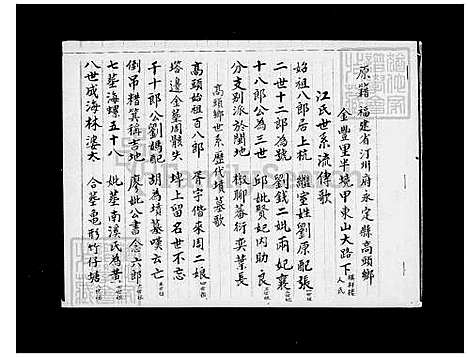 原籍 福建省汀州府永定縣高頭鄉
金豐里半境甲東山大路下
人氏
江氏世系流傳歌
始祖八郎后上杭 繼室姓劉原配張
二世十二郎為號 劉錢二妣兩妃襄
十八郎公為三世 邱妣賢妃内助良
分支別派於閩地 椒聊蕃衍奕葉長
高頭鄉世系歷代墳墓歌
高頭始祖百八郎 胥宇偕來周二娘
塔邊金墓周骸失 埤上留名世不忘
千十郎公劉媽配 胡為墳墓嘆云亡
倒吊糖箕稱吉地 廖妣公書念六郎
七塋海螺五十八 妣塋南溪氏為黃
八世成海林婆太 合塋龜形竹仔塘